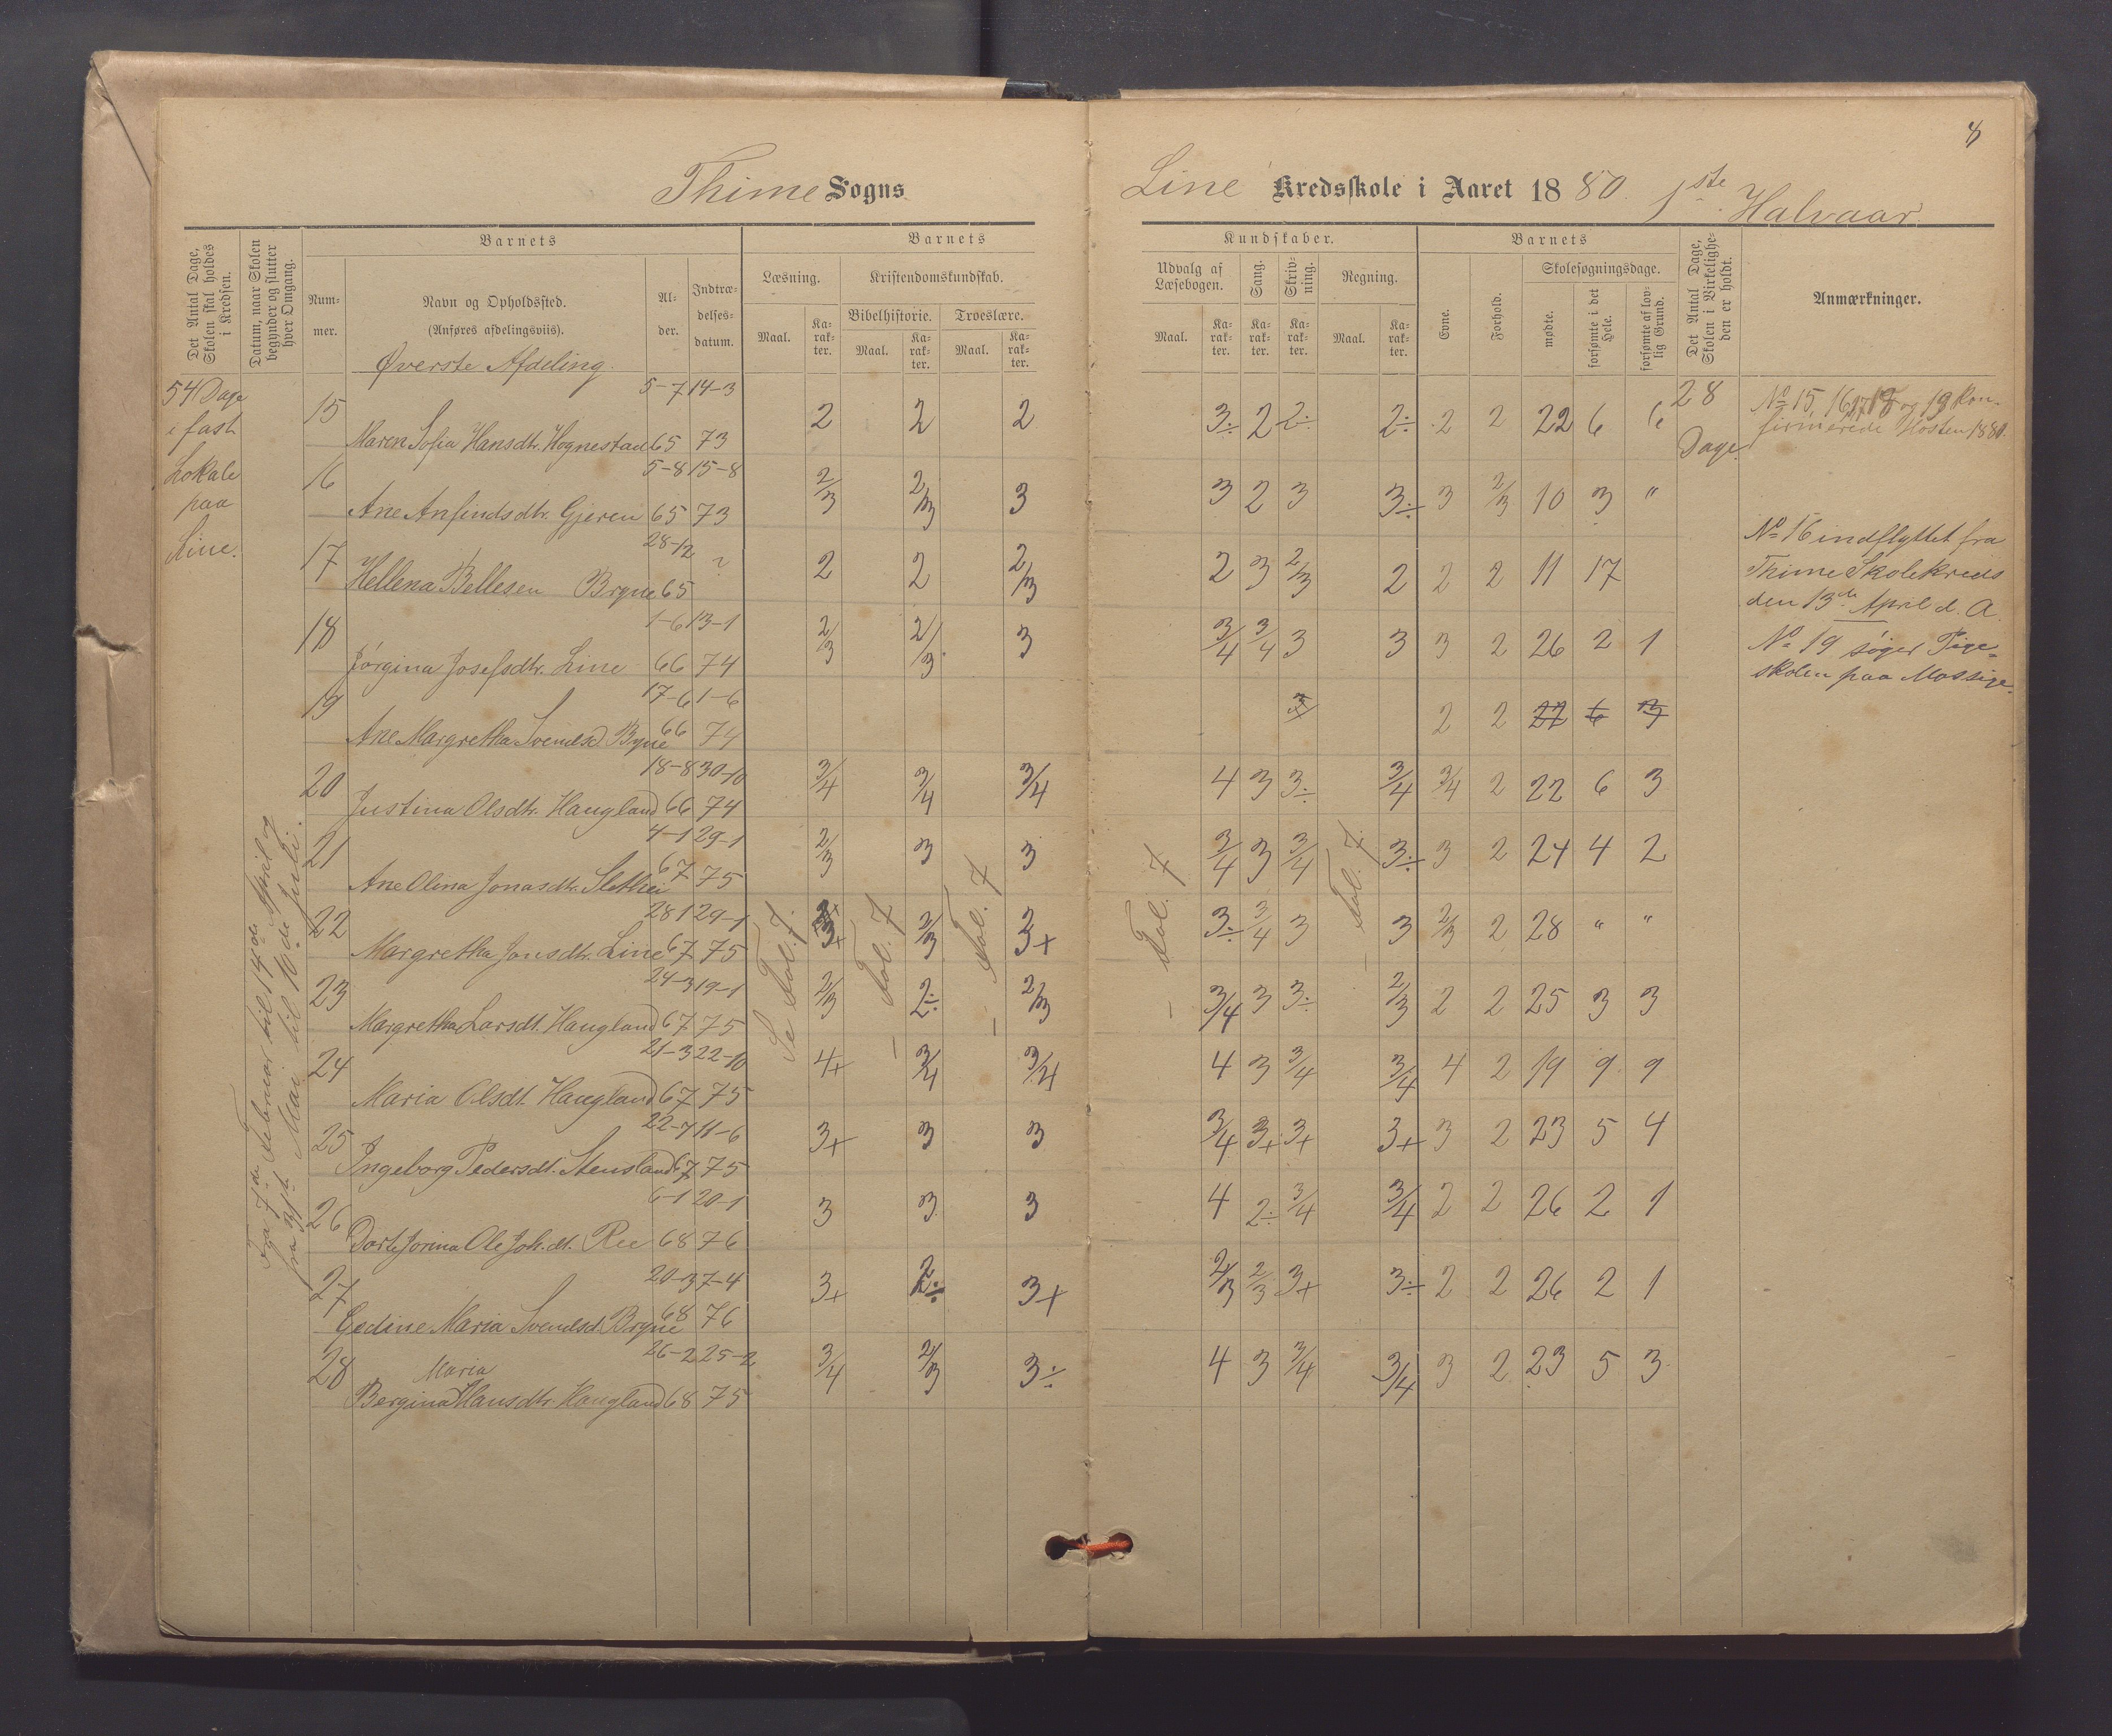 8
Thime Sogns
Line Kredsskole i Aaret 1880. 1ste Halvaar.
Det Antal Dage, Skolen skal holdes i Kredsen.
Datum, naar Skolen begynder og slutter hver Omgang.
Barnets
Nummer.
Navn og Opholdssted.
(Anføres afdelingsviis).
Alder.
Indtrædelsesdatum.
Barnets
Læsning.
Kristendomskundskab.
Bibelhistorie. Troeslære.
Maal. Karakter. Maal. Karakter. Maal. Karakter.
Kundskaber.
Udvalg af Læsebogen.
Sang.
Skrivning.
Regning.
Maal. Karakter. Karakter. Karakter. Maal. Karakter.
Barnets
Evne.
Forhold.
Skolesøgningsdage.
mødte.
forsømte i det Hele.
forsømte af lovlig Grund.
Det Antal Dage, Skolen i Virkeligheden er holdt.
Anmærkninger.
Øverste Afdeling.
54 Dage
i fast
Lokale
paa
Line.
Fra 7de Februar til 14de April og
fra 31te Mai til 10de Juli.
15 Maren Sofia Hansdtr. Hognestad 5-7 65 14-3 73 2 2 2 3÷ 2 2÷ 2÷ 2 2 22 6 6
16 Ane Anfindsdtr. Gjeren 5-8 65 15-8 73 2/3 2/3 3 3 2 3 3÷ 3 2/3 10 3 "
17 Hellena Bellesen Bryne 28-12 65 ? 2 2 2/3 2 3 2/3 2 2 2 11 17
18 Jørgina Josefsdtr. Line 1-6 66 13-1 74 2/3 2/3 3 3/4 3/4 3 3 3 2 26 2 1
19 Ane Margretha Svendsd. Bryne 17-6 66 1-6 74 2 2 22 6
20 Justina Olsdtr. Haugland 18-8 66 30-10 74 3/4 3/4 3/4 4 3 3÷ 3/4 3/4 2 22 6 3
21 Ane Olina Jonasdtr. Slethei 4-1 67 29-1 75 2/3 3 3 3/4 3 3/4 3÷ 3 2 24 4 2
22 Margretha Jonsdtr. Line 28 1 67 29-1 75 3+ 2/3 3+ 3÷ 3/4 3 3 2/3 2 28 " "
23 Margretha Larsdt. Haugland 24-3 67 19-1 75 2/3 2÷ 2/3 3/4 3 3÷ 2/3 2 2 25 3 3
24 Maria Olsdt. Haugland 21-3 67 22-10 75 4+ 3/4 3/4 4 3 3/4 3/4 4 2 19 9 9
25 Ingeborg Pedersdt. Stensland 22-7 67 11-6 75 3+ 3 3 3/4 3+ 3+ 3+ 3 2 23 5 4
26 Dorte Jorina Ole Joh.dt. Ree 6-1 68 20-1 76 3 3 3 4 2÷ 3/4 3/4 2 2 26 2 1
27 Gedine Maria Svendsd. Bryne 20-3 68 7-4 76 3+ 2÷ 3+ 2/3 2/3 3+ 3÷ 2 2 26 2 1
28 Bergina Maria Hansdtr. Haugland 26-2 68 25-2 75 3/4 2/3 3÷ 4 3 3/4 3/4 3 2 23 5 3
Se Fol. 7.
- Fol. 7
- Fol. 7
- Fol. 7
- Fol. 7.
28
Dage.
No 15, 16, 17, 18 og 19 kon-
firmerede Høsten 1880.
No 16 indflyttet fra
Thime Skolekreds
den 13de April d. A.
No 19 søger Pige-
skolen paa Mossige.